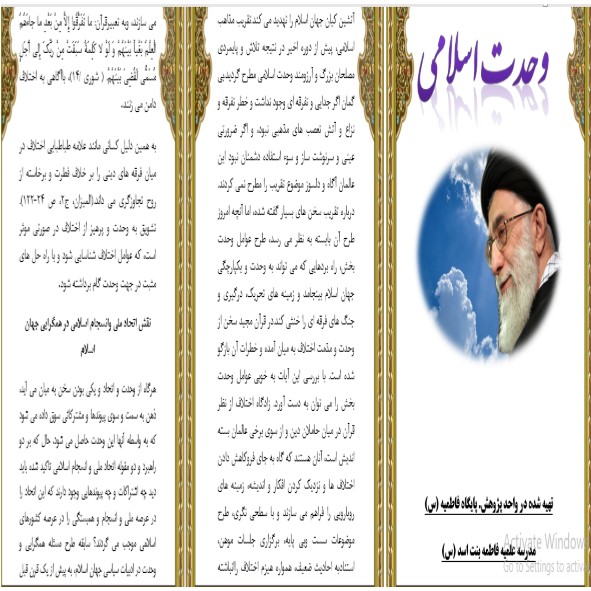 وحدت اسلامی
تهیه شده در واحد پژوهش، پایگاه فاطمیه (س)
مدرسه علمیه فاطمه بنت اسد (س)
آتشین کیان جهان اسلام را تهدید می کند.تقریب مذاهب
اسلامی، پیش از دوره اخیر در نتیجه تلاش و پایمردی
مصلحان بزرگ و آرزومند وحدت اسلامی مطرح گردید.بی
گمان اگر جدایی و تفرقه ای وجود نداشت و خطر تفرقه و
نزاع و آتش تعصب های مذهبی نبود، و اگر ضرورتی
عینی و سرنوشت ساز و سوء استفاده دشمنان نبود این
عالمان آگاه و دلسوز موضوع تقریب را مطرح نمی کردند.
درباره تقریب سخن های بسیار گفته شده، اما آنچه امروز
طرح آن بایسته به نظر می رسد، طرح عوامل وحدت
بخش، راه بردهایی که می تواند به وحدت و یکپارچگی
جهان اسلام بینجامد و زمینه های تحریک، درگیری و
جنگ های فرقه ای را خنثی کند.در قرآن مجید سخن از
وحدت و مذمت اختلاف به میان آمده و خطرات آن بازگو
شده است. با بررسی این آیات به خوبی عوامل وحدت
بخش را می توان به دست آورد. زادگاه اختلاف از نظر
قرآن در میان حاملان دین و از سوی برخی عالمان بسته
اندیش است، آنان هستند که گاه به جای فروکاهش دادن
اختلاف ها و نزدیک کردن افکار و اندیشه، زمینه های
رویارویی را فراهم می سازند و با سطحی نگری، طرح
موضوعات سست وبی پایه، برگزاری جلسات موهن،
استنادبه احادیث ضعیف، همواره هیزم اختلاف راانباشته
می سازند، وبه تعبیرقرآن: ما تَفَرَّقُوا إِلاَّ مِنْ بَعْدِ ما جاءَهُمُ
الْعِلْمُ بَغْیاً بَیْنَهُمْ وَ لَوْ لا کَلِمَةٌ سَبَقَتْ مِنْ رَبِّکَ إِلی أَجَلٍ
مُسَمًّی لَقُضِیَ بَیْنَهُمْ. ( شوری /۱۴)، باآگاهی به اختلاف
دامن می زنند.
به همین دلیل کسانی مانند علامه طباطبایی اختلاف در
میان فرقه های دینی را بر خلاف فطرت و برخاسته از
روح تجاوزگری می داند.(المیزان، ج۲، ص ۲۴-۱۲۲).
تشویق به وحدت و پرهیز از اختلاف در صورتی موثر
است، که عوامل اختلاف شناسایی شود و با راه حل های
مثبت در جهت وحدت گام برداشته شود.
نقش اتحاد ملی وانسجام اسلامی در همگرایی جهان
اسلام
هرگاه از وحدت و اتحاد و یکی بودن سخن به میان می آید،
ذهن به سمت و سوی پیوندها و مشترکاتی سوق داده می شود
که به واسطه آنها این وحدت حاصل می شود. حال که بر دو
راهبرد و دو مقوله اتحاد ملی و انسجام اسلامی تاکید شده باید
دید چه اشتراکات و چه پیوندهایی وجود دارند که این اتحاد را
در عرصه ملی و انسجام و همبستگی را در عرصه کشورهای
اسلامی موجب می گردند؟ سابقه طرح مسئله همگرایی و
وحدت در ادبیات سیاسی جهان اسلام، به بیش از یک قرن قبل
Activate Window
Go to Settings to activa